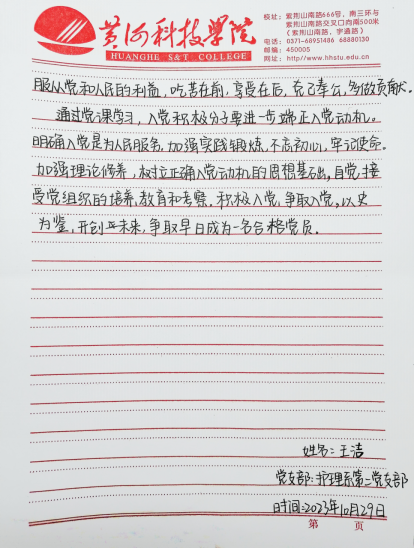 黄河科技学院
HUANGHE S&T COLLEGE
校址：紫荆山南路666号，南三环与
紫荆山南路交叉口向南500米
（紫荆山南路、宇通路）
电话：0371-68951486 68880130
邮编：450005
网址：http://www.hhstu.edu.cn
服从党和人民的利益，吃苦在前，享受在后，克己奉公，多做贡献。
通过党课学习，入党积极分子要进一步端正入党动机。
明确入党是为人民服务，加强实践锻炼，不忘初心，牢记使命。
加强理论修养，树立正确入党动机的思想基础，自觉接
受党组织的培养、教育和考察，积极入党，争取入党，以史
为鉴，开创未来，争取早日成为一名合格党员。
姓名：王洁
党支部：护理系第二党支部
时间：2023年10月29日
第 页